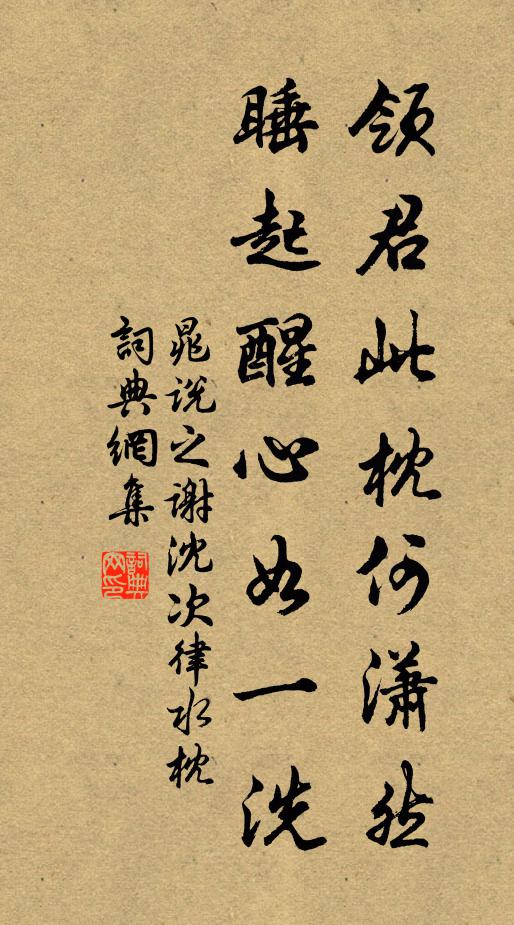 領君此枕何瀟然
睡起醒心如一洗
晁說之謝沈次律水枕
詞典網集
詞典網印